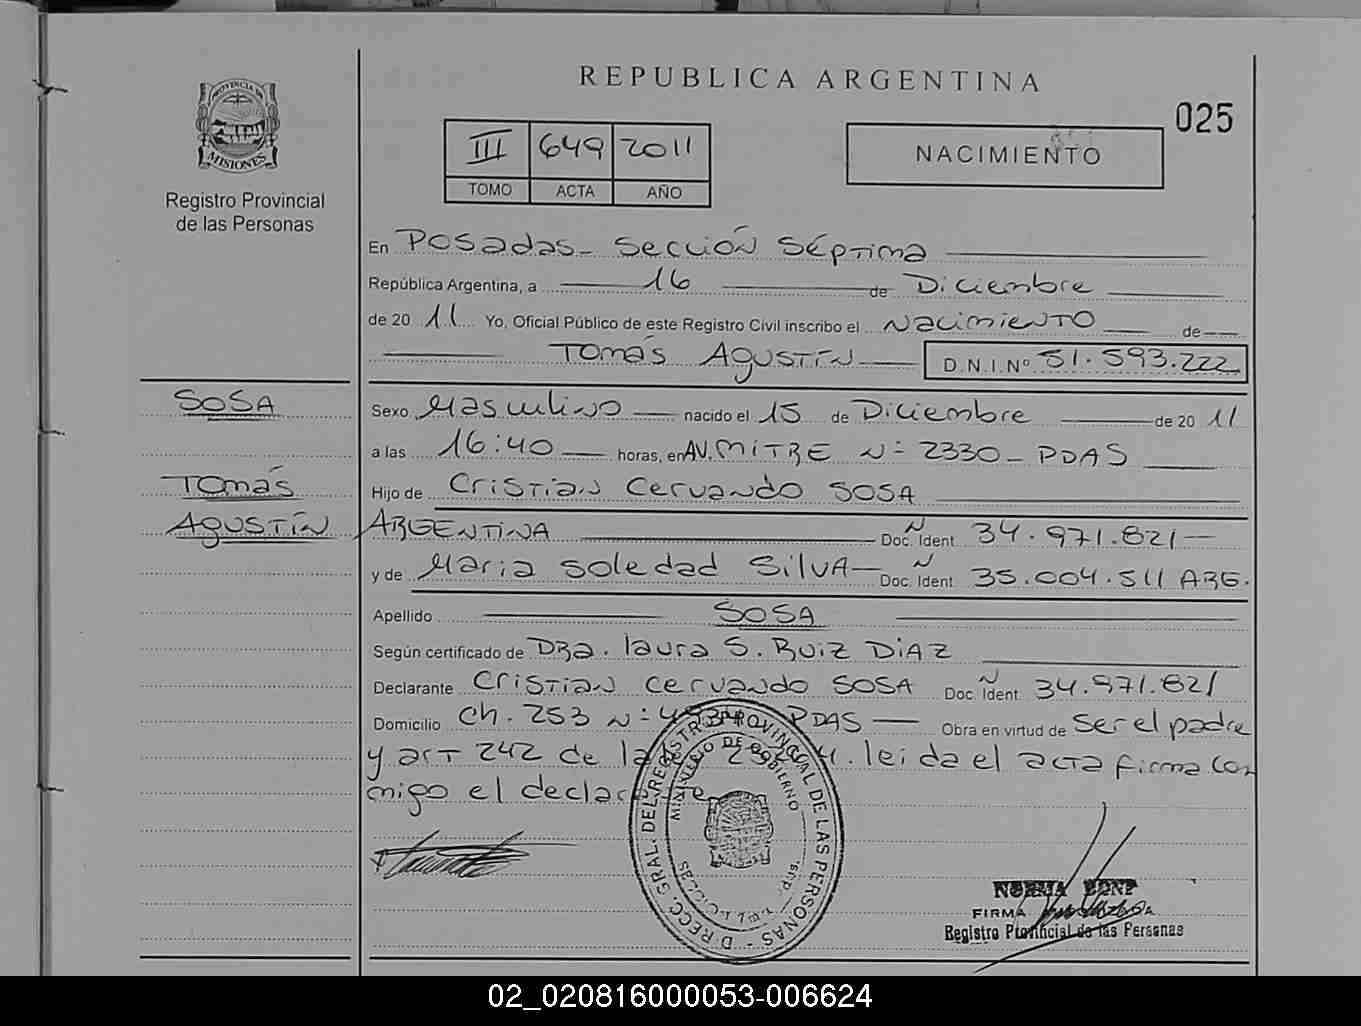 REPUBLICA ARGENTINA
025
PROVINCIA DE
MISIONES
Registro Provincial
de las Personas
III 649 2011
TOMO ACTA AÑO
NACIMIENTO
En Posadas - Sección Séptima
República Argentina, a 16 de Diciembre
de 20 11 Yo, Oficial Público de este Registro Civil inscribo el Nacimiento de
Tomás Agustín D.N.I.Nº 51.593.222
SOSA
Sexo Masculino nacido el 15 de Diciembre de 20 11
a las 16:40 horas, en AV. MITRE Nº 2330 - PDAS
Tomás
Hijo de Cristian Cervando SOSA
Agustín
ARGENTINA Doc. Ident. 34.971.821
y de Maria Soledad SilVA Doc. Ident. 35.004.511 ARG.
Apellido SOSA
Según certificado de DRa. laura S. RUIZ DIAZ
Declarante Cristian Cervando SOSA Doc. Ident. 34.971.821
Domicilio Ch. 253 Nº PDAS Obra en virtud de ser el padre
y art 242 de la leida el acta firma con
migo el
DIRECC. GRAL. DEL REGISTRO PROVINCIAL DE LAS PERSONAS
MINISTERIO DE GOBIERNO
NORMA
FIRMA
Registro Provincial de las Personas
02_020816000053-006624